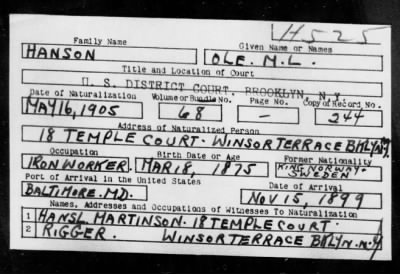 H525
Family Name Given Name or Names
HANSON OLE. M.L.
Title and Location of Court
U. S. DISTRICT COURT, BROOKLYN, N.Y.
Date of Naturalization Volume or Bundle No. Page No. Copy of Record No.
MAY 16, 1905 68 - 244
Address of Naturalized Person
18 TEMPLE COURT. WINSOR TERRACE BKLYN NY.
Occupation Birth Date or Age Former Nationality
IRON WORKER. MAR 18, 1875 KING NORWAY- SWEDEN
Port of Arrival in the United States Date of Arrival
BALTIMORE. MD. NOV 15, 1899
Names, Addresses and Occupations of Witnesses To Naturalization
1 HANSL MARTINSON. 18 TEMPLE COURT.
2 RIGGER. WINSOR TERRACE BKLYN. N.Y